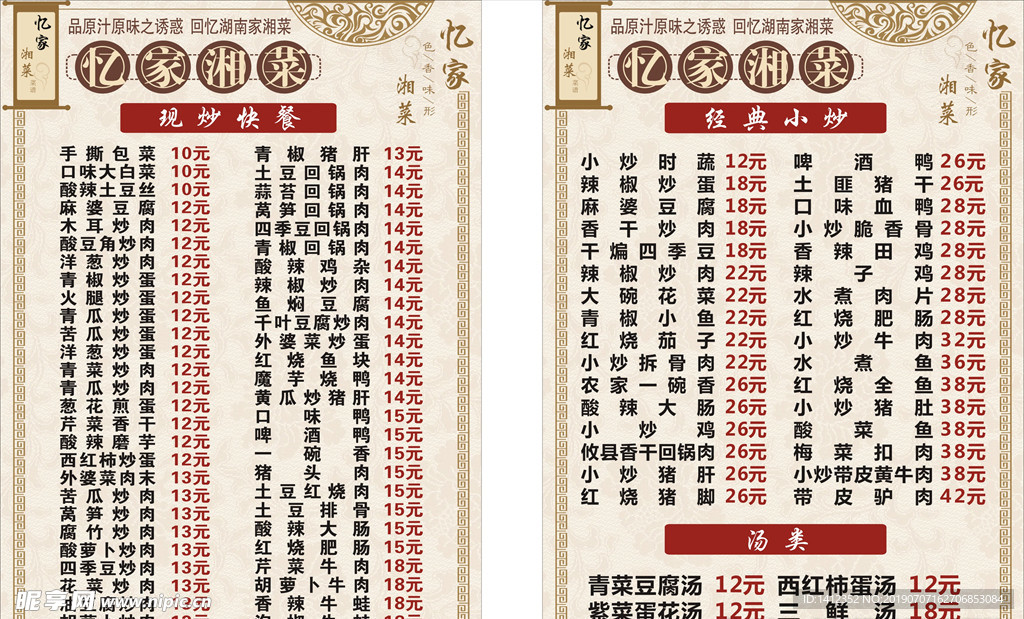 忆家
湘菜
菜谱
品原汁原味之诱惑 回忆湖南家湘菜
忆家湘菜
忆家
湘菜
色/香/味/形
现炒快餐
手撕包菜 10元
口味大白菜 10元
酸辣土豆丝 10元
麻婆豆腐 12元
木耳炒肉 12元
酸豆角炒肉 12元
洋葱炒肉 12元
青椒炒蛋 12元
火腿炒蛋 12元
青瓜炒蛋 12元
苦瓜炒蛋 12元
洋葱炒蛋 12元
青菜炒肉 12元
青瓜炒肉 12元
葱花煎蛋 12元
芹菜香干 12元
酸辣磨芋 12元
西红柿炒蛋 12元
外婆菜肉末 13元
苦瓜炒肉 13元
莴笋炒肉 13元
腐竹炒肉 13元
酸萝卜炒肉 13元
四季豆炒肉 13元
花菜炒肉 13元
青椒猪肝 13元
土豆回锅肉 14元
蒜苔回锅肉 14元
莴笋回锅肉 14元
四季豆回锅肉 14元
青椒回锅肉 14元
酸辣鸡杂 14元
辣椒炒肉 14元
鱼焖豆腐 14元
千叶豆腐炒肉 14元
外婆菜炒蛋 14元
红烧鱼块 14元
魔芋烧鸭 14元
黄瓜炒猪肝 14元
口味鸭 15元
啤酒鸭 15元
一碗香 15元
猪头肉 15元
土豆红烧肉 15元
土豆排骨 15元
酸辣大肠 15元
红烧肥肠 15元
芹菜牛肉 18元
胡萝卜牛肉 18元
香辣牛蛙 18元
忆家
湘菜
菜谱
品原汁原味之诱惑 回忆湖南家湘菜
忆家湘菜
忆家
湘菜
色/香/味/形
经典小炒
小炒时蔬 12元
辣椒炒蛋 18元
麻婆豆腐 18元
香干炒肉 18元
干煸四季豆 18元
辣椒炒肉 22元
大碗花菜 22元
青椒小鱼 22元
红烧茄子 22元
小炒拆骨肉 22元
农家一碗香 26元
酸辣大肠 26元
小炒鸡 26元
攸县香干回锅肉 26元
小炒猪肝 26元
红烧猪脚 26元
啤酒鸭 26元
土匪猪干 26元
口味血鸭 28元
小炒脆香骨 28元
香辣田鸡 28元
辣子鸡 28元
水煮肉片 28元
红烧肥肠 28元
小炒牛肉 32元
水煮鱼 36元
红烧全鱼 38元
小炒猪肚 38元
酸菜鱼 38元
梅菜扣肉 38元
小炒带皮黄牛肉 38元
带皮驴肉 42元
汤类
青菜豆腐汤 12元 西红柿蛋汤 12元
紫菜蛋花汤 12元 三鲜汤 18元
昵享网 www.nipic.cn
ID:1412352 NO:20190707162706853084